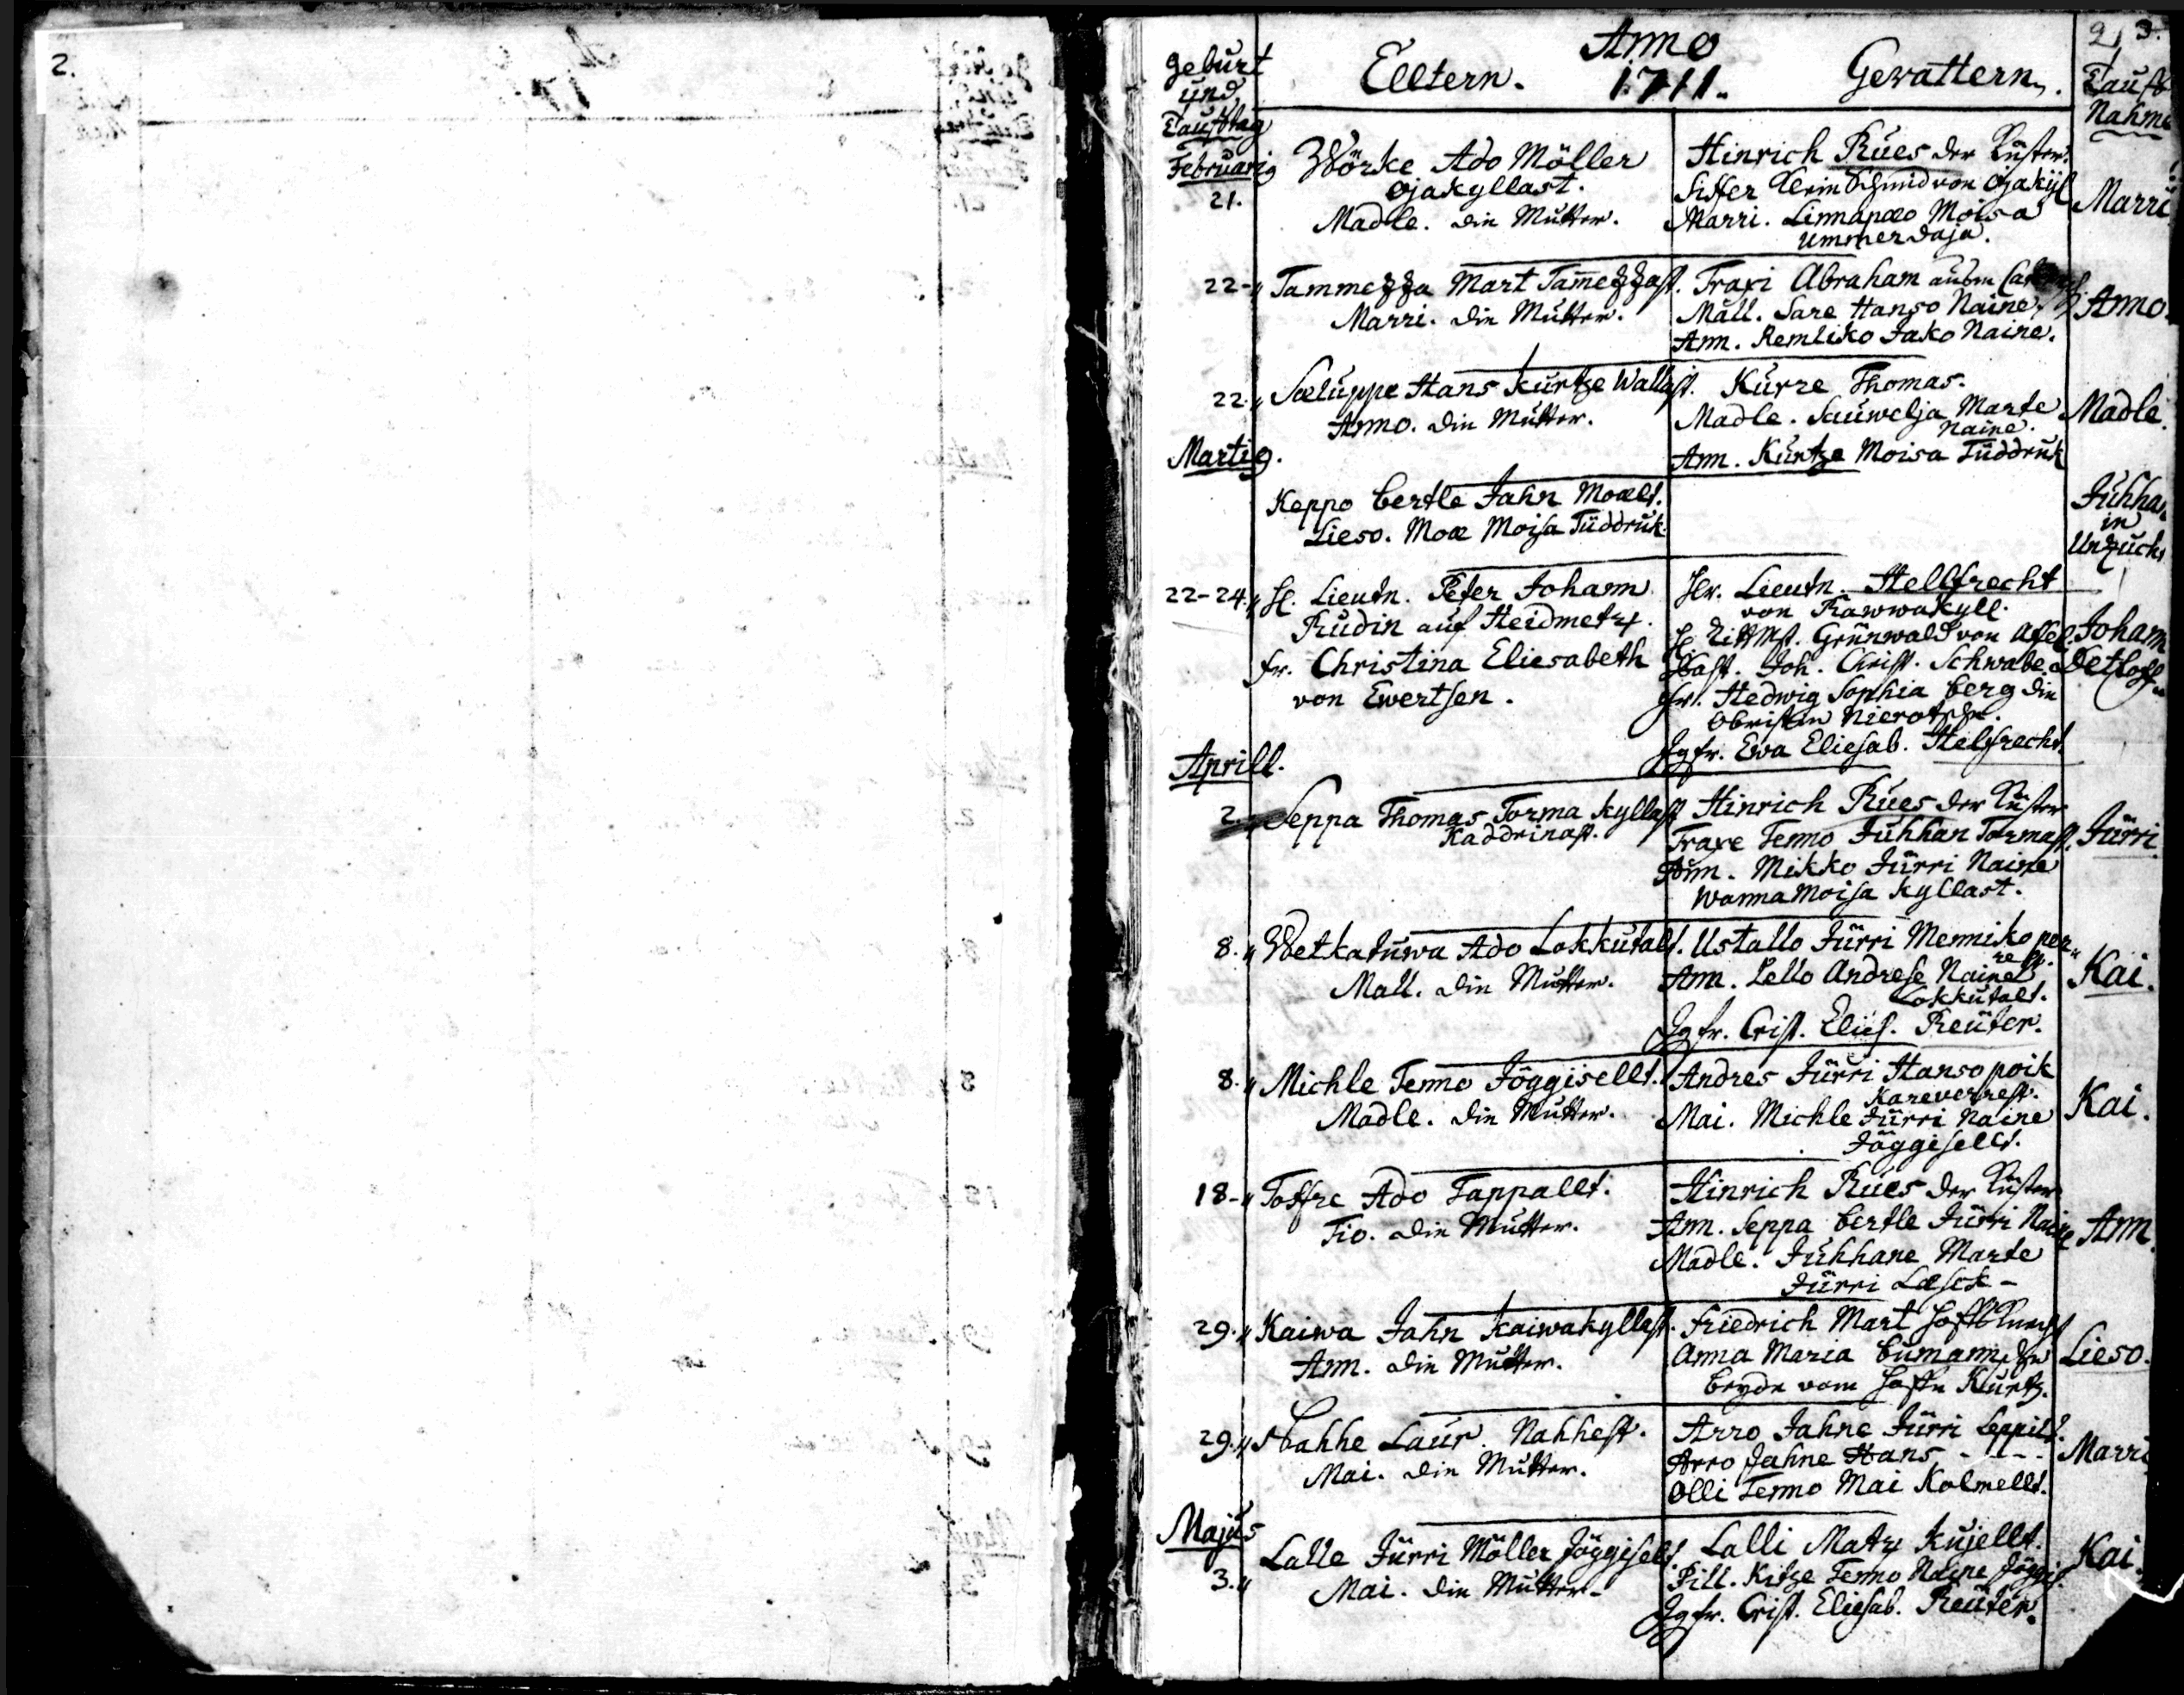 2.
2 3.
Anno
1711.
Geburt
und
Tauftag
Elltern.
Gevattern.
Tauf
Nahme
Februarij
21.
Wörke Ado Möller
Ojakyllast.
Madle. die Mutter.
Hinrich Rües der Küster.
Siffer Klein Schmid von Ojakyl
Marri. Linnapæo Moisa
Ummerdaja.
Marri
22.
Tammezza Mart Tam̄ezzast.
Marri. die Mutter.
Traxi Abraham außm
Mall. Sare Hanso Naine
Ann. Remliko Jako Naine.
Anno.
22.
Sæluppe Hans Kurtze Wallast.
Anno. die Mutter.
Kurze Thomas.
Madle. Sauwelja Marte
Naine.
Ann. Kurtze Moisa Tüddruk
Madle.
Martij.
Keppo Bertle Jahn Moælt.
Lieso. Moæ Moisa Tüddruk.
Juhhan
in
Unzucht
22-24.
H. Lieutn. Peter Johann
Rudin auf Heidmetz.
fr. Christina Eliesabeth
von Ewertsen.
Hr. Lieutn. Hellfrecht
von Rawwakyll.
H. Rittmst. Grünwaldt von Affel.
Past. Joh. Christ. Schwabe
Fr. Hedwig Sophia Berg die
Obristin Nierothsche.
Jgfr. Eva Eliesab. Helfrecht.
Johann
Detloff.
Aprill.
2.
Seppa Thomas Torma kyllast
Kaddrinast.
Hinrich Rües der Küster
Traxe Tenno Juhhan Tormast.
Ann. Mikko Jürri Naine
Wanna Moisa kyllast.
Jürri.
8.
Wetkatuwa Ado Lokkutalt.
Mall. die Mutter.
Ustallo Jürri Menniko per-
rest.
Ann. Lello Andrese Naine
Lokkutalt.
Jgfr. Crist. Elies. Reüter.
Kai.
8.
Michle Tenno Jöggisellt.
Madle. die Mutter.
Andres Jürri Hanso poik
Kareverrest.
Mai. Michle Jürri Naine
Jöggisellt.
Kai.
18.
Toffre Ado Tappallt.
Tio. die Mutter.
Hinrich Rües der Küster
Ann. Seppa Bertle Jürri Naine
Madle. Juhhane Marte
Jürri Læsck-
Ann.
29.
Kaiwa Jahn Kaiwakyllast.
Ann. die Mutter.
Friedrich Mart
Anna Maria
Beyde vom Hoffe Kurtz.
Lieso.
29.
Pahhe Laur Nahhest.
Mai. die Mutter.
Arro Jahne Jürri Leppilt.
Arro Jahne Hans - - -
Olli Tenno Mai Kolmellt.
Marri
Majus
3.
Lalle Jürri Möller Jöggiselt.
Mai. die Mutter-
Lalli Matz Kujellt.
Pill. Kitze Tenno Naine Jöggis.
Jgfr. Crist. Eliesab. Reüter.
Kai.